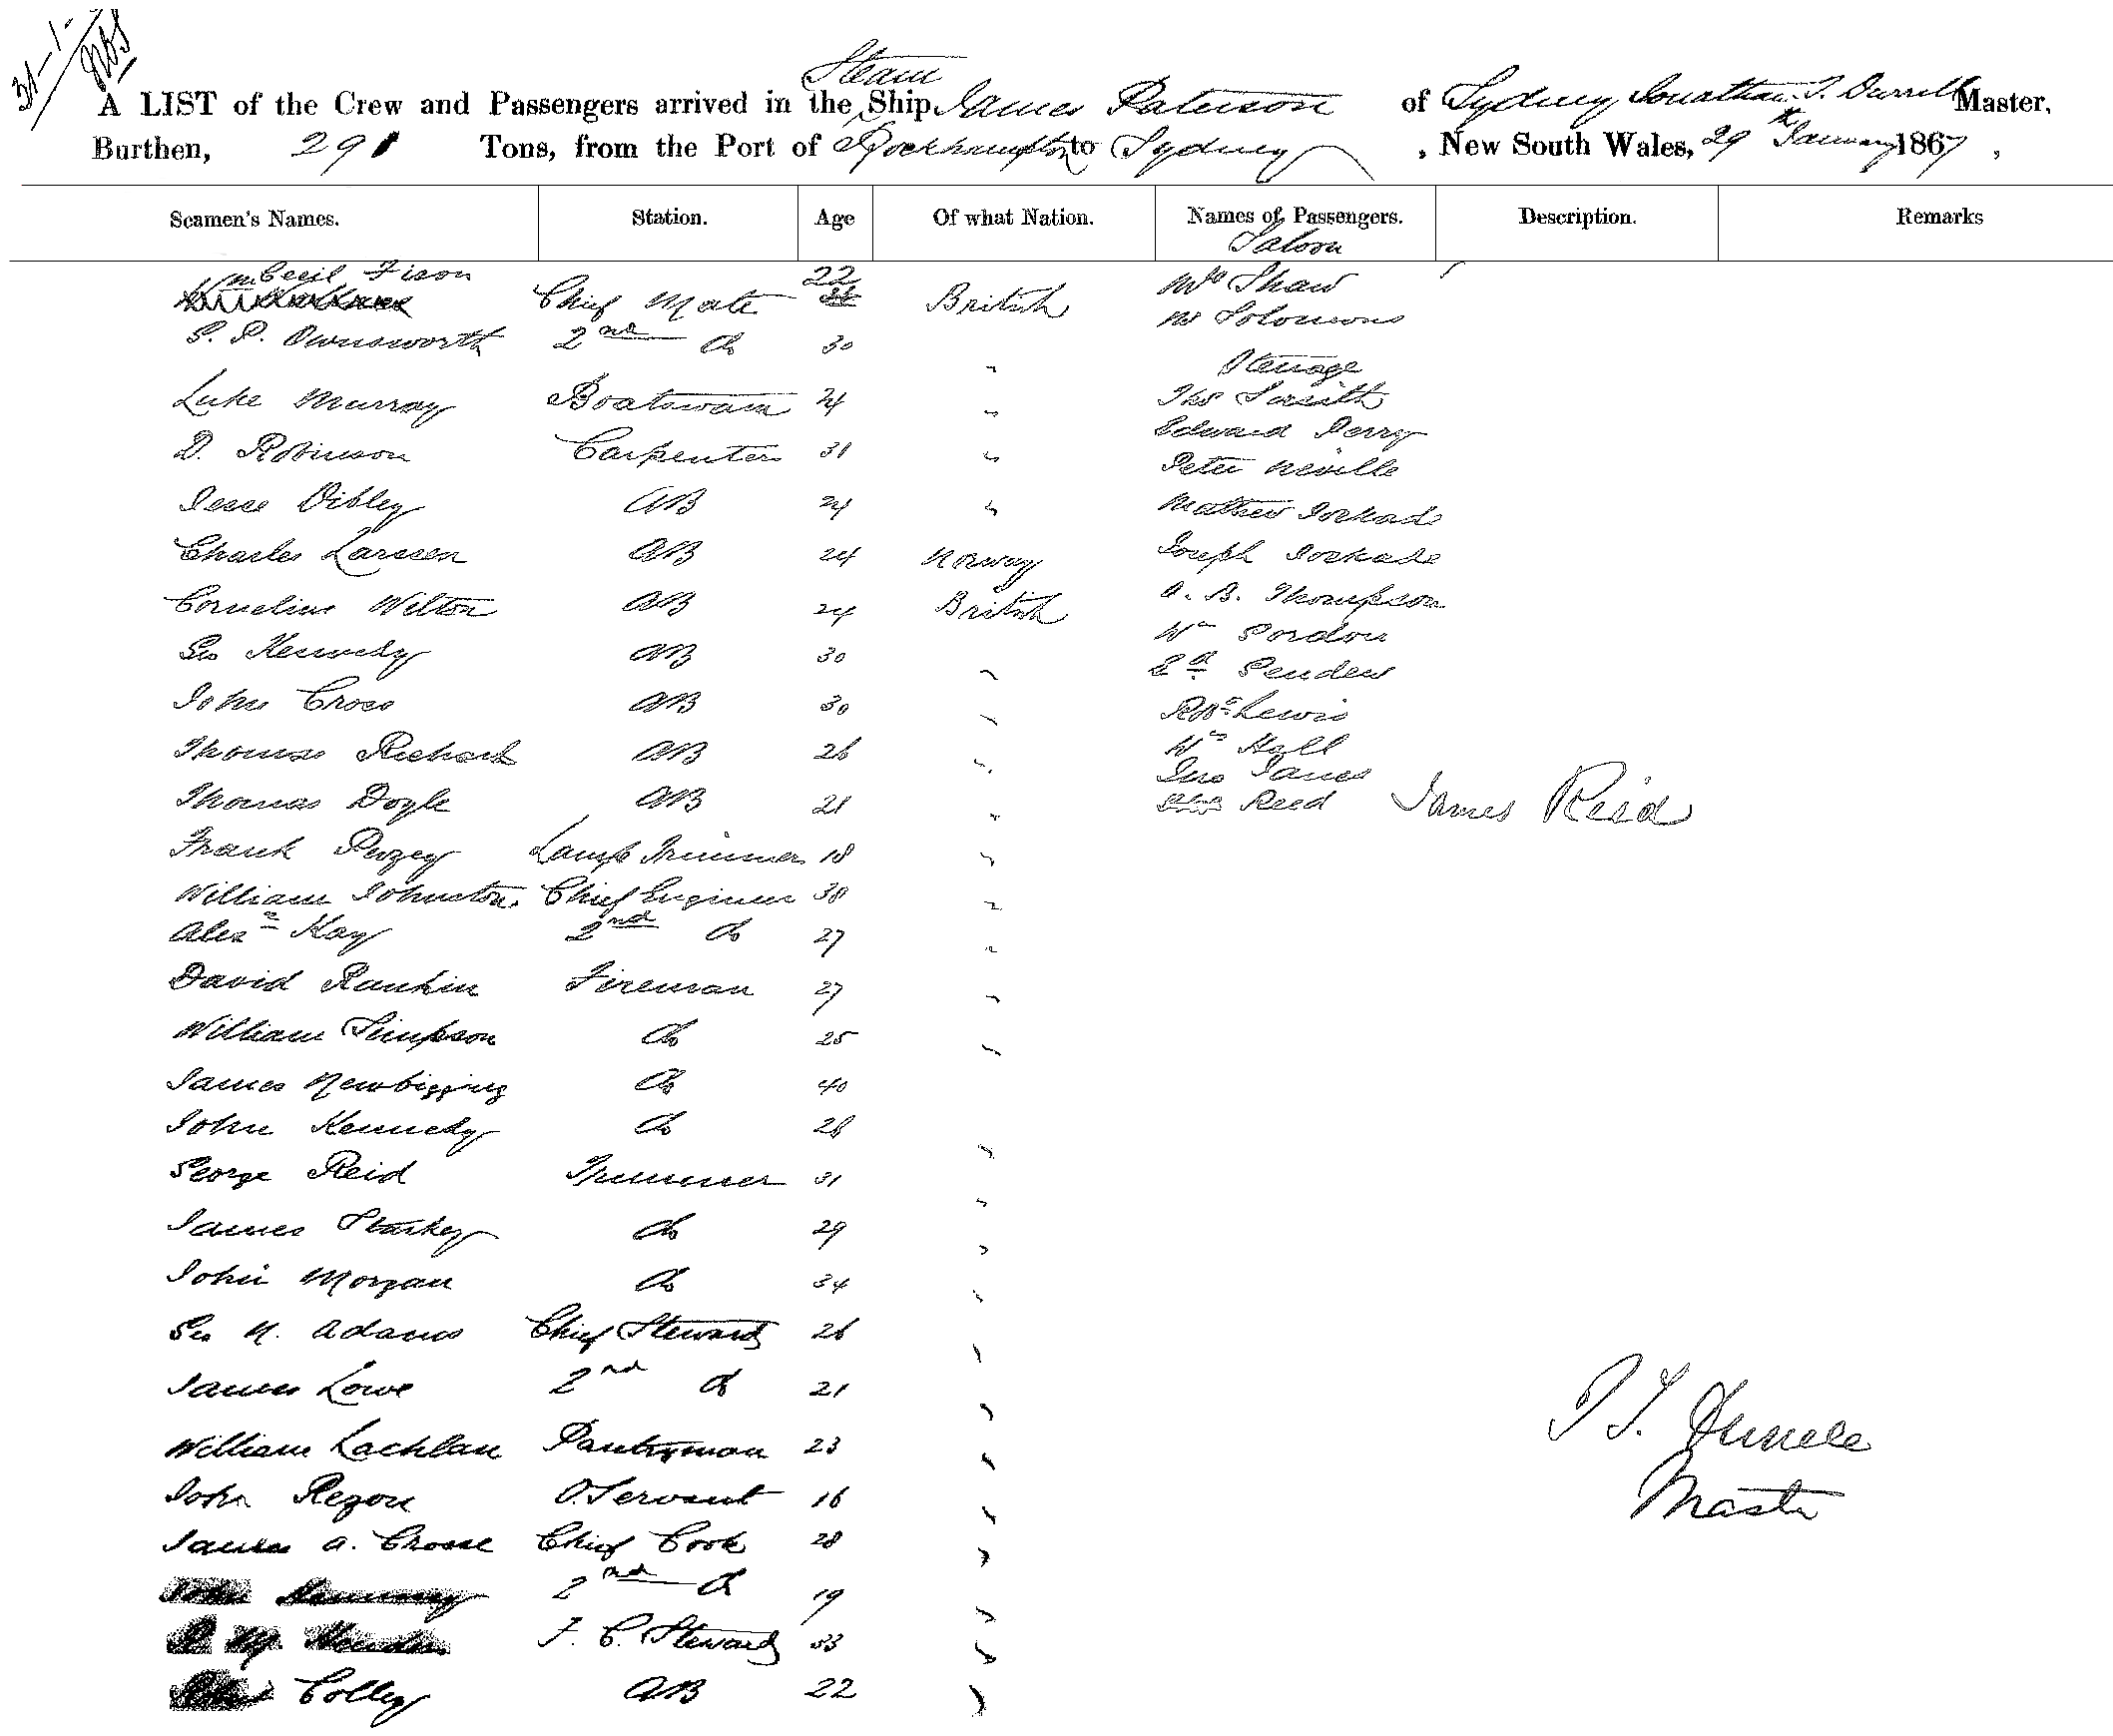 31-1-
Steam
A LIST of the Crew and Passengers arrived in the Ship James Paterson of Sydney Jonathan T. Durrell Master,
Burthen, 291 Tons, from the Port of Rockhampton to Sydney, New South Wales, 29th January 1867,
Seamen's Names. Station. Age Of what Nation. Names of Passengers. Description. Remarks
Saloon
Wm Cecil Fison Chief Mate 22 British Mrs Shaw
Mr Solomons
S. P. Ownsworth 2nd Do 30 "
Steerage
Luke Murray Boatswain 24 " Thos Smith
Edward Perry
D. Robinson Carpenter 31 " Peter Neville
Jesse Dibley AB 24 " Mathew
Charles Larssen AB 24 Norway Joseph
Cornelius Wilton AB 24 British A. B. Thompson
Geo Kennedy AB 30 " Wm Gordon
Ed
John Cross AB 30 " Robt Lewis
Thomas Richards AB 26 " Wm Hall
Jno James
Thomas Doyle AB 21 " Reed James Reid
Frank Puzey Lamp Trimmer 18 "
William Johnston Chief Engineer 38 "
Alexr Kay 2nd Do 27 "
David Rankin Fireman 27 "
William Simpson Do 25 "
James Newbigging Do 40
John Kennedy Do 28 "
George Reid Trimmer 31 "
James Starkey Do 29 "
John Morgan Do 34 "
Geo N. Adams Chief Steward 26 "
James Lowe 2nd Do 21 "
William Lachlan Pantryman 23 "
John Regon O. Servant 16 "
James A. Crosse Chief Cook 28 "
John 2nd Do 19 "
F. C. Steward 33 "
Colley AB 22 "
J T. Durrell
Master